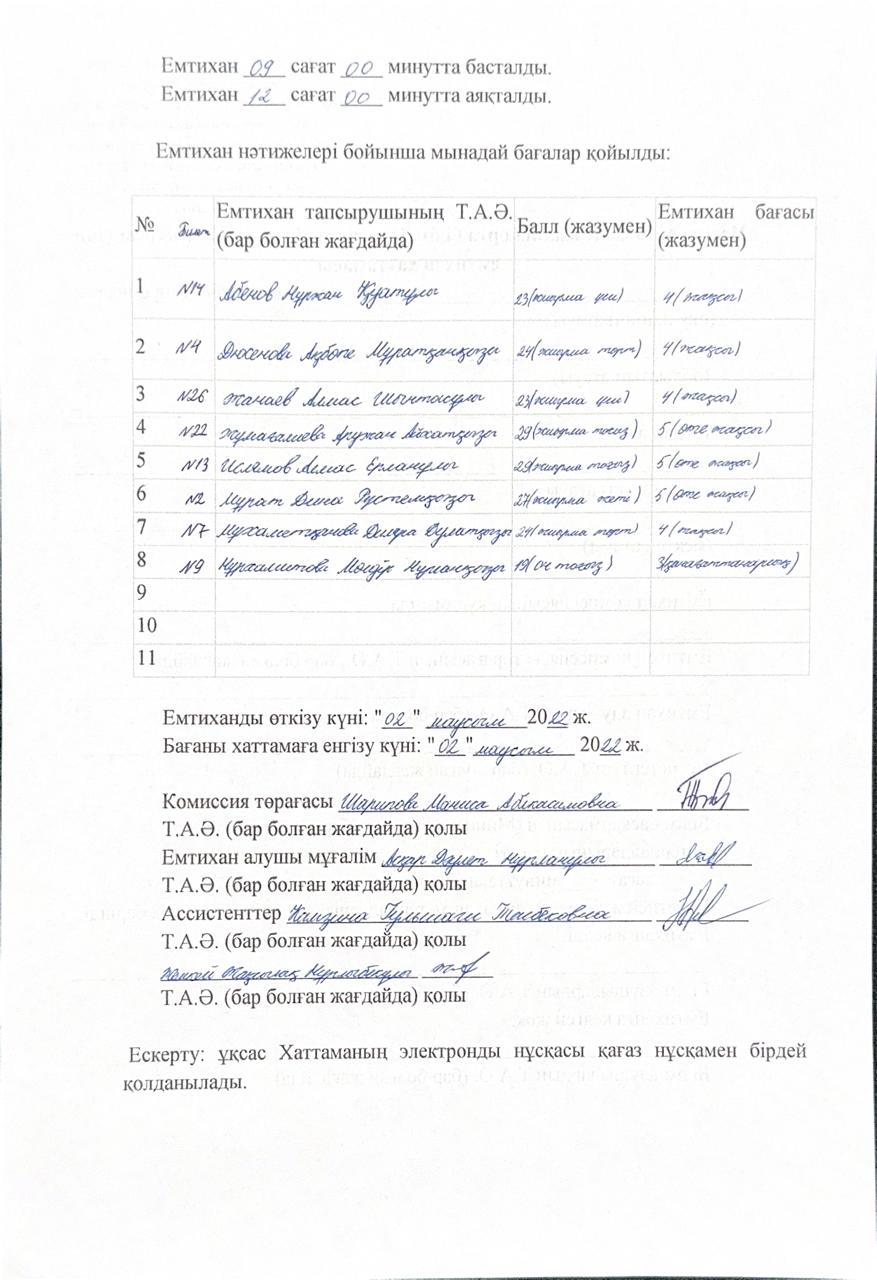 Емтихан 09 сағат 00 минутта басталды.
Емтихан 12 сағат 00 минутта аяқталды.
Емтихан нәтижелері бойынша мынадай бағалар қойылды:
№ Билет Емтихан тапсырушының Т.А.Ә. (бар болған жағдайда) Балл (жазумен) Емтихан бағасы (жазумен)
1 N14 Абенов Нұржан Қуатұлы 23(жиырма үш) 4(жақсы)
2 N4 Дюсенова Ақбөпе Мұратқанқызы 24(жиырма төрт) 4(жақсы)
3 N26 Жанаев Алмас Шынтасұлы 23(жиырма үш) 4(жақсы)
4 N22 Жұмағалиева Аружан Айхатқызы 29(жиырма тоғыз) 5(өте жақсы)
5 N13 Исламов Алмас Ерланұлы 29(жиырма тоғыз) 5(өте жақсы)
6 N2 Мұрат Дина Рүстемқызы 27(жиырма жеті) 5(өте жақсы)
7 N7 Мұхаметқанова Дилара Дулатқызы 24(жиырма төрт) 4(жақсы)
8 N9 Нұрхамитова Мөлдір Нұланқызы 19(он тоғыз) 3(қанағаттанарлық)
9
10
11
Емтиханды өткізу күні: "02" маусым 2022 ж.
Бағаны хаттамаға енгізу күні: "02" маусым 2022 ж.
Комиссия төрағасы Шарипова Маниса Абікасымовна
Т.А.Ә. (бар болған жағдайда) қолы
Емтихан алушы мұғалім Асқар Дәулет Нұрланұлы
Т.А.Ә. (бар болған жағдайда) қолы
Ассистенттер Кәмзина Гульшаги Тоибековна
Т.А.Ә. (бар болған жағдайда) қолы
Жақсылық Нұрлыбекұлы
Т.А.Ә. (бар болған жағдайда) қолы
Ескерту: ұқсас Хаттаманың электронды нұсқасы қағаз нұсқамен бірдей
қолданылады.